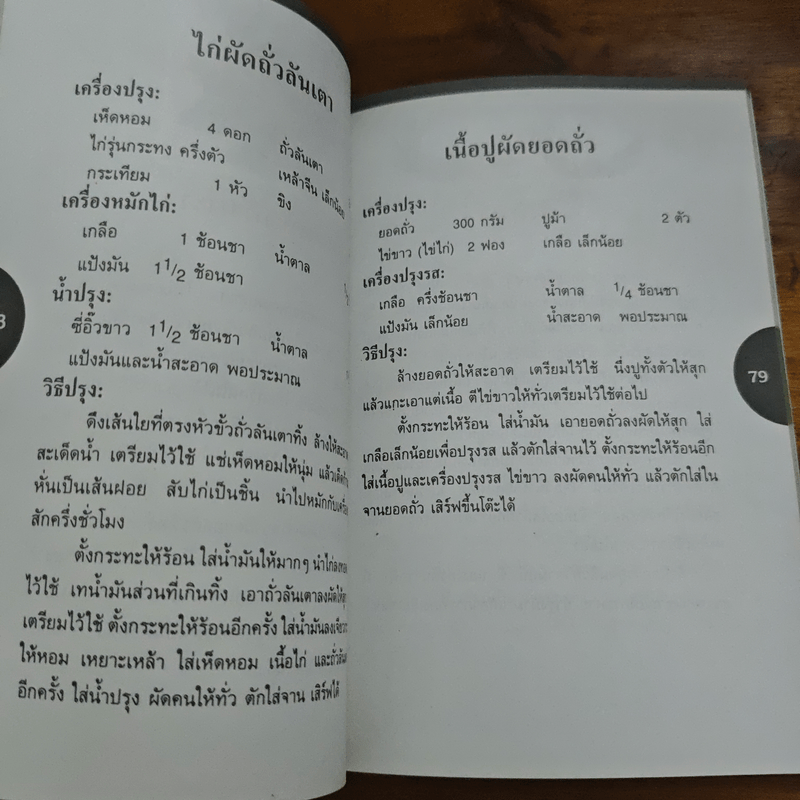 ไก่ผัดถั่วลันเตา
เครื่องปรุง:
เห็ดหอม 4 ดอก ถั่วลันเตา
ไก่รุ่นกระทง ครึ่งตัว เหล้าจีน เล็กน้อย
กระเทียม 1 หัว ขิง
เครื่องหมักไก่:
เกลือ 1 ช้อนชา น้ำตาล
แป้งมัน 1 1/2 ช้อนชา
น้ำปรุง:
ซี่อิ๊วขาว 1 1/2 ช้อนชา น้ำตาล
แป้งมันและน้ำสะอาด พอประมาณ
วิธีปรุง:
ดึงเส้นใยที่ตรงหัวขั้วถั่วลันเตาทิ้ง ล้างให้สะอาด
สะเด็ดน้ำ เตรียมไว้ใช้ แช่เห็ดหอมให้นุ่ม
หั่นเป็นเส้นฝอย สับไก่เป็นชิ้น นำไปหมักกับ
สักครึ่งชั่วโมง
ตั้งกระทะให้ร้อน ใส่น้ำมันให้มากๆ นำไก่ลง
ไว้ใช้ เทน้ำมันส่วนที่เกินทิ้ง เอาถั่วลันเตาลงผัดให้สุก
เตรียมไว้ใช้ ตั้งกระทะให้ร้อนอีกครั้ง ใส่น้ำมันลง
ให้หอม เหยาะเหล้า ใส่เห็ดหอม เนื้อไก่ และ
อีกครั้ง ใส่น้ำปรุง ผัดคนให้ทั่ว ตักใส่จาน เสิร์ฟได้
เนื้อปูผัดยอดถั่ว
เครื่องปรุง:
ยอดถั่ว 300 กรัม ปูม้า 2 ตัว
ไข่ขาว (ไข่ไก่) 2 ฟอง เกลือ เล็กน้อย
เครื่องปรุงรส:
เกลือ ครึ่งช้อนชา น้ำตาล 1/4 ช้อนชา
แป้งมัน เล็กน้อย น้ำสะอาด พอประมาณ
วิธีปรุง:
ล้างยอดถั่วให้สะอาด เตรียมไว้ใช้ นึ่งปูทั้งตัวให้สุก
แล้วแกะเอาแต่เนื้อ ตีไข่ขาวให้ทั่วเตรียมไว้ใช้ต่อไป
ตั้งกระทะให้ร้อน ใส่น้ำมัน เอายอดถั่วลงผัดให้สุก ใส่
เกลือเล็กน้อยเพื่อปรุงรส แล้วตักใส่จานไว้ ตั้งกระทะให้ร้อนอีก
ใส่เนื้อปูและเครื่องปรุงรส ไข่ขาว ลงผัดคนให้ทั่ว แล้วตักใส่ใน
จานยอดถั่ว เสิร์ฟขึ้นโต๊ะได้
79